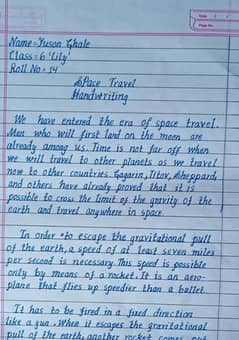 Date
Page No.
Name - Yuson Ghale
Class = 6 'Lily'
Roll No = 14
Space Travel
Handwriting
We have entered the era of space travel.
Men who will first land on the moon are
already among us. Time is not far off when
we will travel to other planets as we travel
now to other countries. Gagarin, Titov, Sheppard,
and others have already proved that it is
possible to cross the limit of the gravity of the
earth and travel anywhere in space.
In order to escape the gravitational pull
of the earth, a speed of at least seven miles
per second is necessary. This speed is possible
only by means of a rocket. It is an aero-
plane that flies up speedier than a bullet.
It has to be fired in a fixed direction
like a gun. When it escapes the gravitational
pull of the earth, another rocket comes